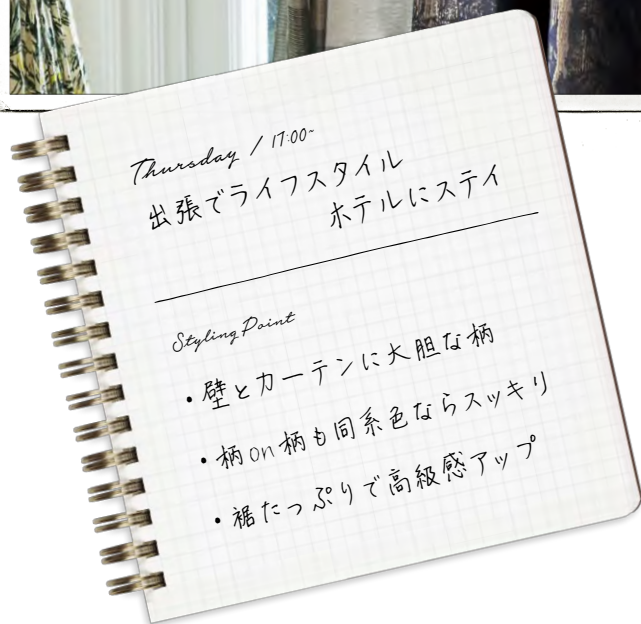 Thursday / 17:00~
出張でライフスタイル
ホテルにステイ
Styling Point
・壁とカーテンに大胆な柄
・柄on柄も同系色ならスッキリ
・裾たっぷりで高級感アップ